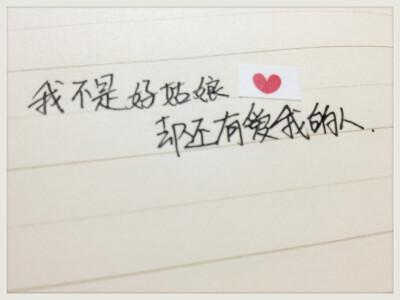 我不是好姑娘
却还有爱我的人.